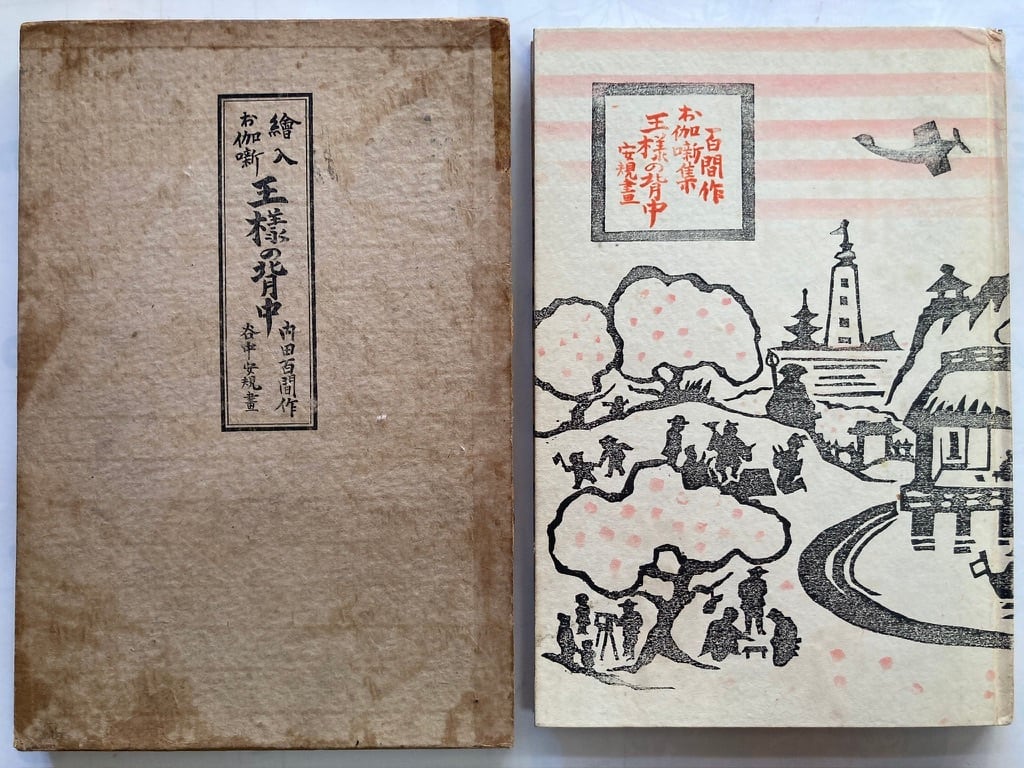 繪入
お伽噺
王様の背中
内田百間作
谷中安規畫
百間作
お伽噺集
王様の背中
安規畫